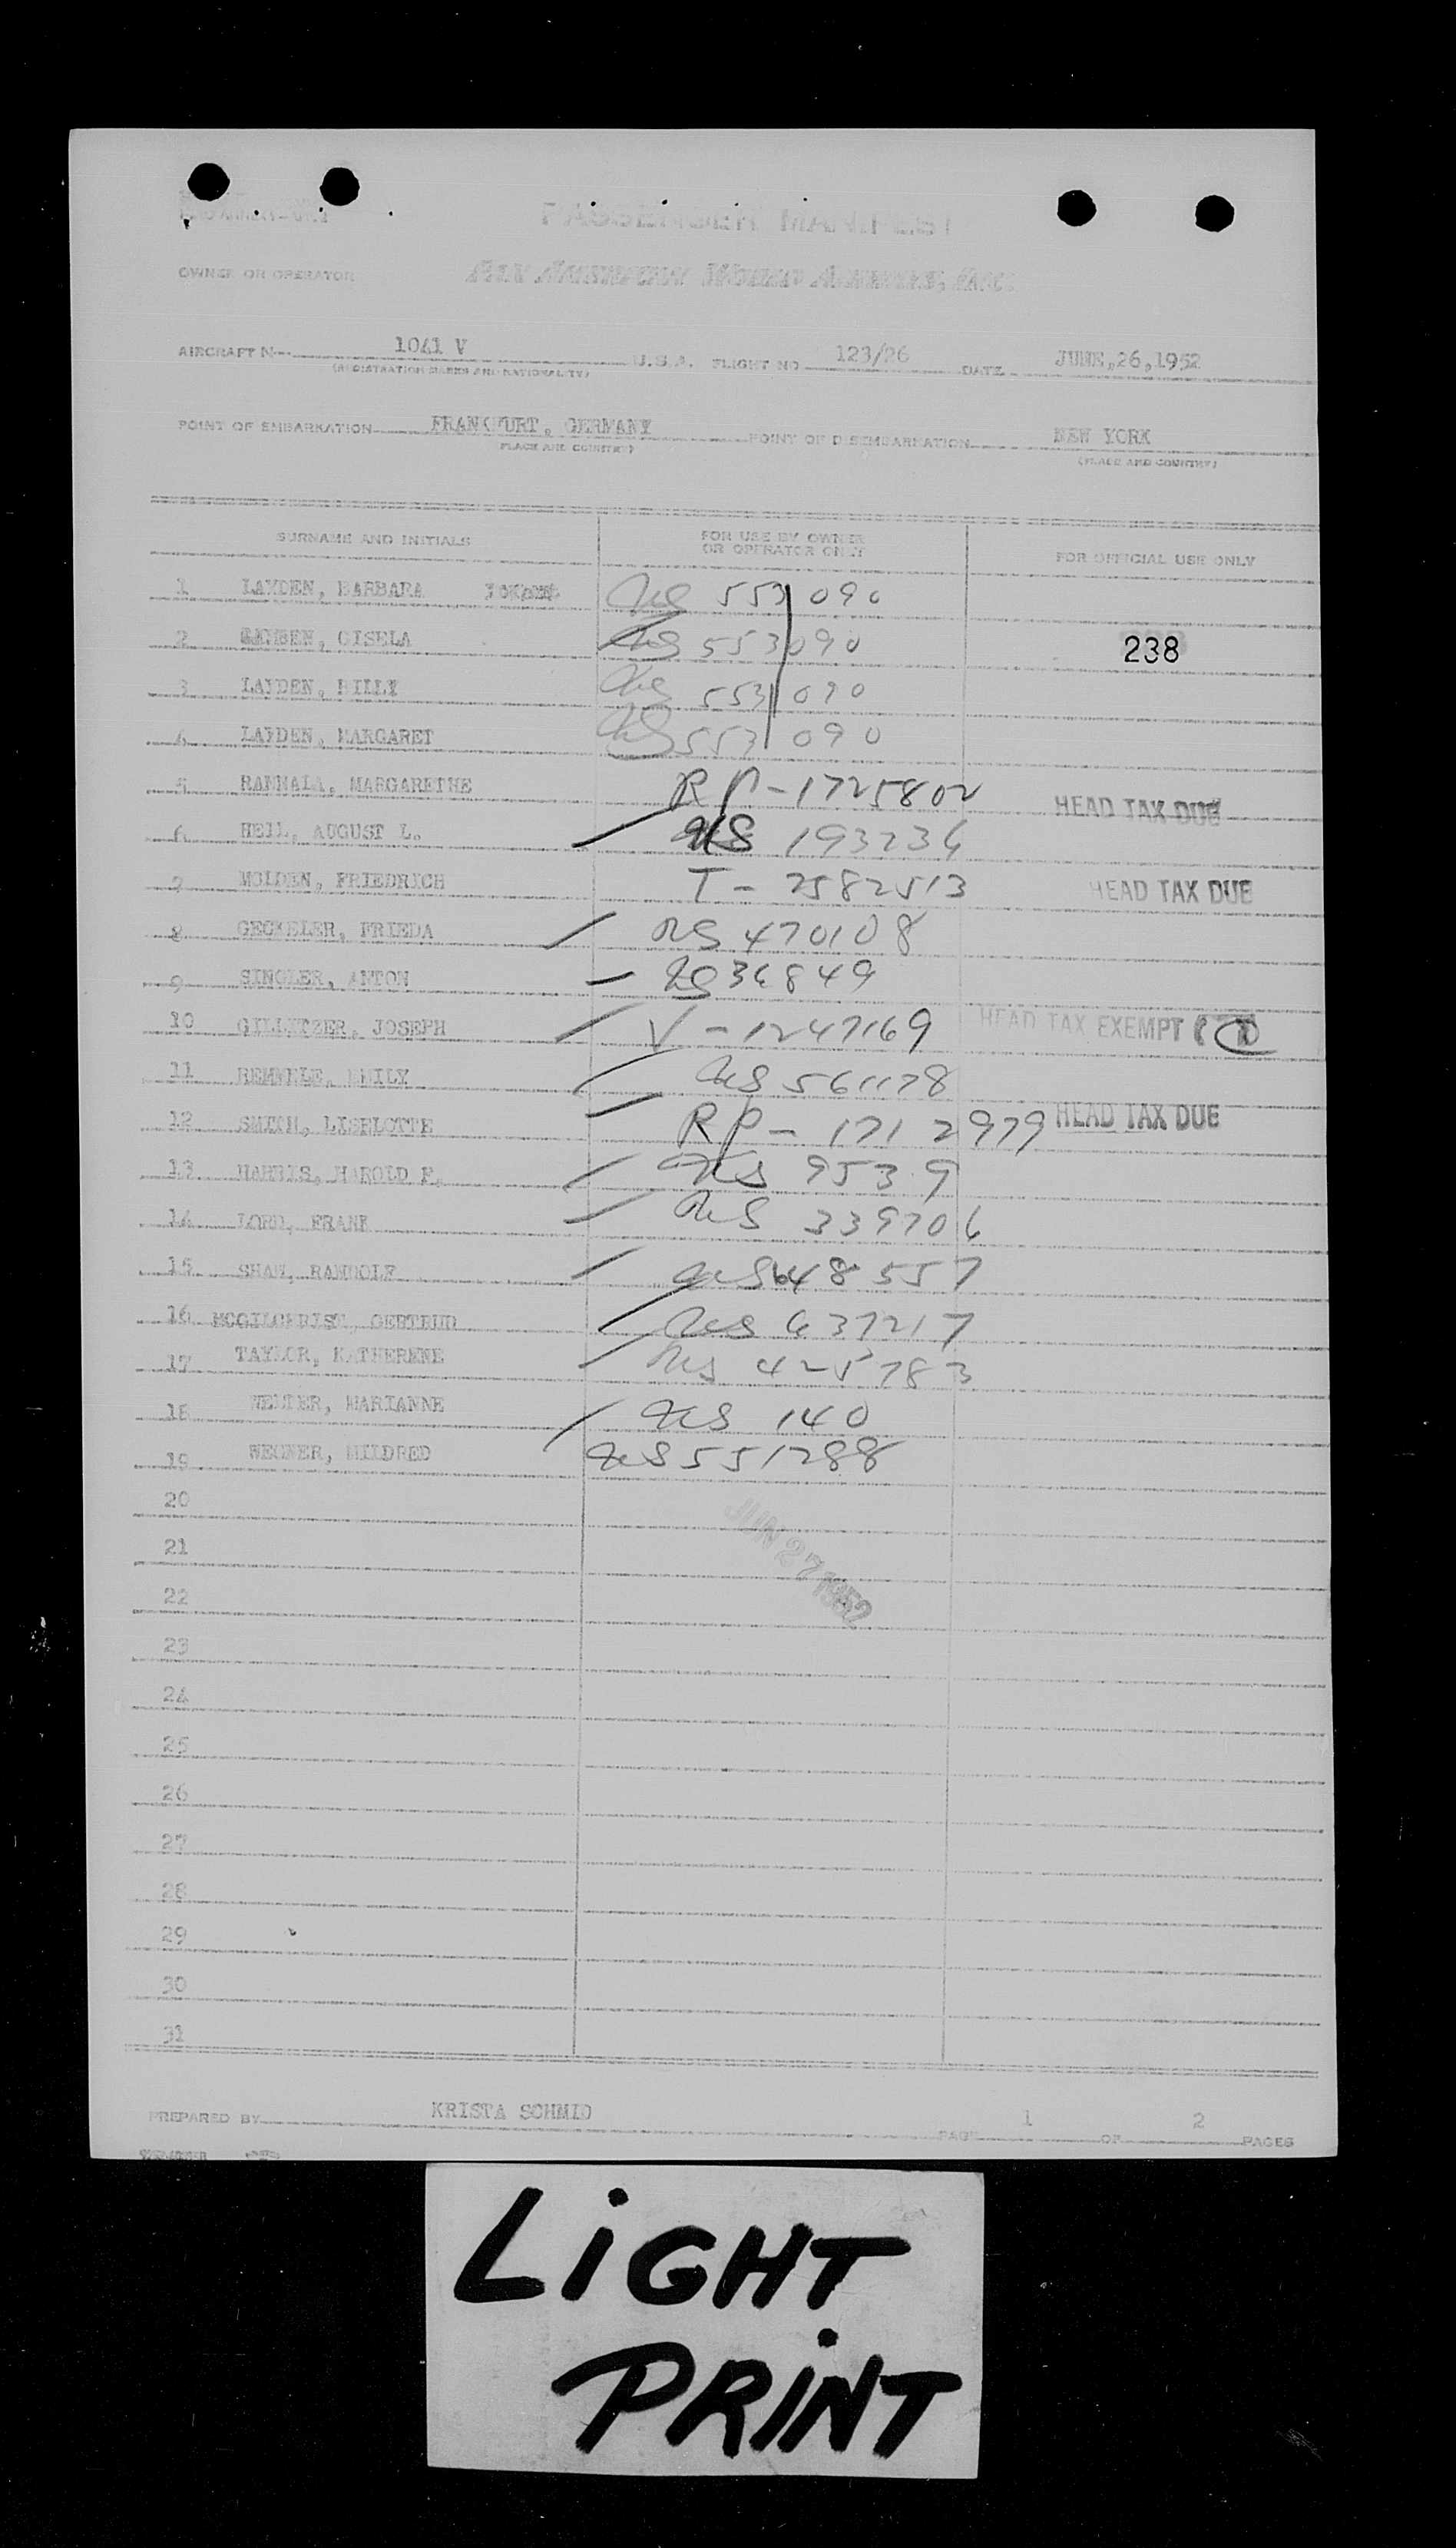 PASSENGER MANIFEST
OWNER OR OPERATOR PAN AMERICAN WORLD AIRWAYS, INC.
AIRCRAFT N 1041 V U.S.A. FLIGHT NO 123/26 DATE JUNE,26,1952
(REGISTRATION MARKS AND NATIONALITY)
POINT OF EMBARKATION FRANKFURT, GERMANY POINT OF DISEMBARKATION NEW YORK
(PLACE AND COUNTRY) (PLACE AND COUNTRY)
SURNAME AND INITIALS FOR USE BY OWNER OR OPERATOR ONLY FOR OFFICIAL USE ONLY
1 LAYDEN, BARBARA US 553090
2 GISELA US 553090 238
3 LAYDEN, BILLY US 553090
4 LAYDEN, MARGARET US 553090
5 RANNALA, MARGARETHE RP-1725802 HEAD TAX DUE
6 HEIL, AUGUST L. US 193236
7 MOLDEN, FRIEDRICH T-2582513 HEAD TAX DUE
8 GECKELER, FRIEDA US 470108
9 SINGLER, ANTON US 36849
10 GILLITZER, JOSEPH V-1247169 HEAD TAX EXEMPT
11 REMMELE, EMILY US 561178
12 SMITH, LISELOTTE RP-1712979 HEAD TAX DUE
13 HARRIS, HAROLD F. US 9539
14 LORD, FRANK US 339706
15 SHAW, RANDOLF US 648557
16 MCGILCHRIST, GERTRUD US 637217
17 TAYLOR, KATHERENE US 425783
18 WELTER, MARIANNE US 140
19 WEGNER, MILDRED US 551288
20
JUN 27 1952
21
22
23
24
25
26
27
28
29
30
31
PREPARED BY KRISTA SCHMID PAGE 1 OF 2 PAGES
LIGHT
PRINT